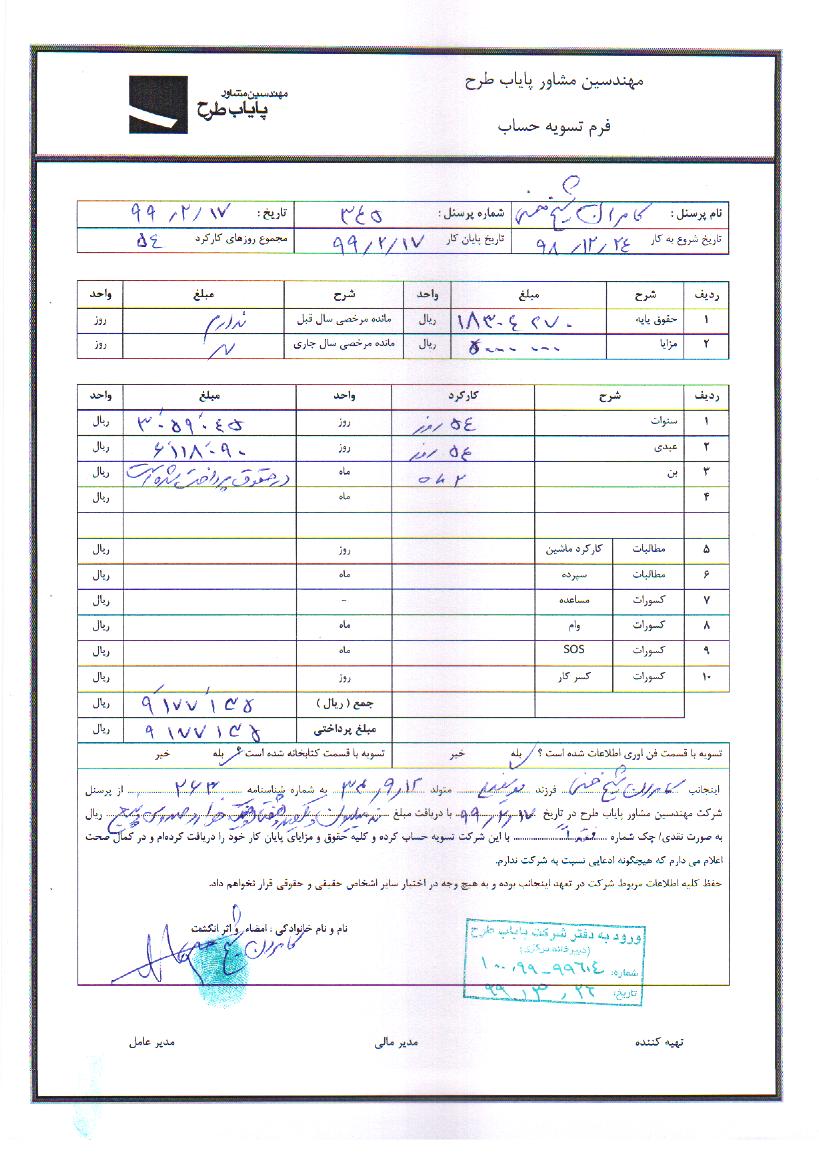 مهندسین مشاور پایاب طرح
مهندسین مشاور
پایاب طرح
فرم تسویه حساب
نام پرسنل : کامران شیخ حسنی شماره پرسنل : ۳۴۵ تاریخ : ۹۹/۲/۱۷
تاریخ شروع به کار ۹۸/۱۲/۲۴ تاریخ پایان کار ۹۹/۲/۱۷ مجموع روزهای کارکرد ۵۴
ردیف شرح مبلغ واحد شرح مبلغ واحد
۱ حقوق پایه ۱۸۳۰۴۲۷۰ ریال مانده مرخصی سال قبل ندارم روز
۲ مزایا ۵۰۰۰۰۰۰ ریال مانده مرخصی سال جاری روز
ردیف شرح کارکرد واحد مبلغ واحد
۱ سنوات ۵۴ روز روز ۳۰۵۹۰۴۵ ریال
۲ عیدی ۵۴ روز روز ۶۱۱۸۰۹۰ ریال
۳ بن ۲ ماه ماه در حقوق پرداخت شده است ریال
۴ ماه ریال
۵ مطالبات کارکرد ماشین روز ریال
۶ مطالبات سپرده ماه ریال
۷ کسورات مساعده - ریال
۸ کسورات وام ماه ریال
۹ کسورات SOS ماه ریال
۱۰ کسورات کسر کار روز ریال
جمع ( ریال ) ۹۱۷۷۱۳۵ ریال
مبلغ پرداختی ۹۱۷۷۱۳۵ ریال
تسویه با قسمت فن اوری اطلاعات شده است ؟ بله خیر تسویه با قسمت کتابخانه شده است ؟ بله خیر
اینجانب کامران شیخ حسنی فرزند متولد ۳۴/۹/۱۲ به شماره شناسنامه ۲۶۳ از پرسنل
شرکت مهندسین مشاور پایاب طرح در تاریخ ۹۹/۲/۱۷ با دریافت مبلغ نه میلیون و یکصد و هفتاد و هفت هزار و صد و سی و پنج ریال
به صورت نقدی/ چک شماره نقداً با این شرکت تسویه حساب کرده و کلیه حقوق و مزایای پایان کار خود را دریافت کرده‌ام و در کمال صحت
اعلام می دارم که هیچگونه ادعایی نسبت به شرکت ندارم.
حفظ کلیه اطلاعات مربوط شرکت در تعهد اینجانب بوده و به هیچ وجه در اختیار سایر اشخاص حقیقی و حقوقی قرار نخواهم داد.
نام و نام خانوادگی : امضاء و اثر انگشت
کامران شیخ حسنی
ورود به دفتر شرکت پایاب طرح
(دبیرخانه مرکزی)
شماره: ۱۰۰.۹۹-۹۹۶۰۴
تاریخ: ۹۹/۳/۲۶
تهیه کننده مدیر مالی مدیر عامل